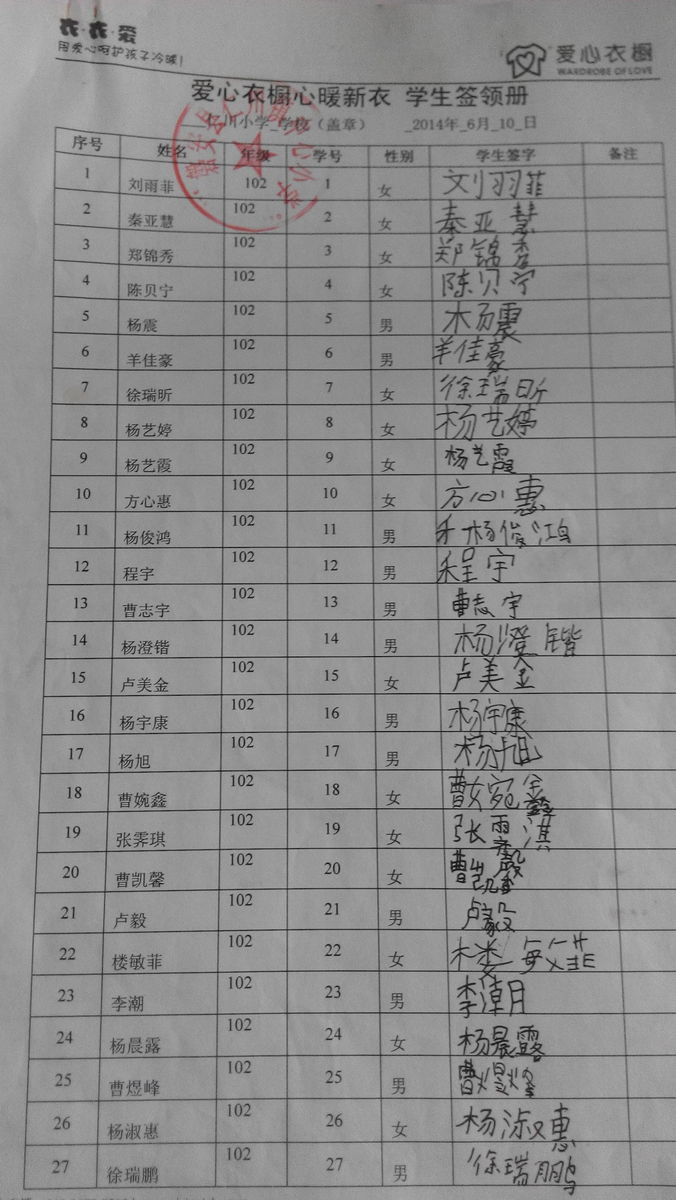 衣·衣·爱
用爱心呵护孩子冷暖！
爱心衣橱
WARDROBE OF LOVE
爱心衣橱心暖新衣 学生签领册
仁川小学_学校（盖章） _2014年_6月_10_日
序号 姓名 年级 学号 性别 学生签字 备注
1 刘雨菲 102 1 女 刘羽菲
2 秦亚慧 102 2 女 秦亚慧
3 郑锦秀 102 3 女 郑锦秀
4 陈贝宁 102 4 女 陈贝宁
5 杨震 102 5 男 杨震
6 羊佳豪 102 6 男 羊佳豪
7 徐瑞昕 102 7 女 徐瑞昕
8 杨艺婷 102 8 女 杨艺婷
9 杨艺霞 102 9 女 杨艺霞
10 方心惠 102 10 女 方心惠
11 杨俊鸿 102 11 男 杨俊鸿
12 程宇 102 12 男 程宇
13 曹志宇 102 13 男 曹志宇
14 杨澄锴 102 14 男 杨澄锴
15 卢美金 102 15 女 卢美金
16 杨宇康 102 16 男 杨宇康
17 杨旭 102 17 男 杨旭
18 曹婉鑫 102 18 女 曹婉鑫
19 张霁琪 102 19 女 张霁淇
20 曹凯馨 102 20 女 曹凯馨
21 卢毅 102 21 男 卢毅
22 楼敏菲 102 22 女 楼敏菲
23 李潮 102 23 男 李潮
24 杨晨露 102 24 女 杨晨露
25 曹煜峰 102 25 男 曹煜烽
26 杨淑惠 102 26 女 杨淑惠
27 徐瑞鹏 102 27 男 徐瑞鹏